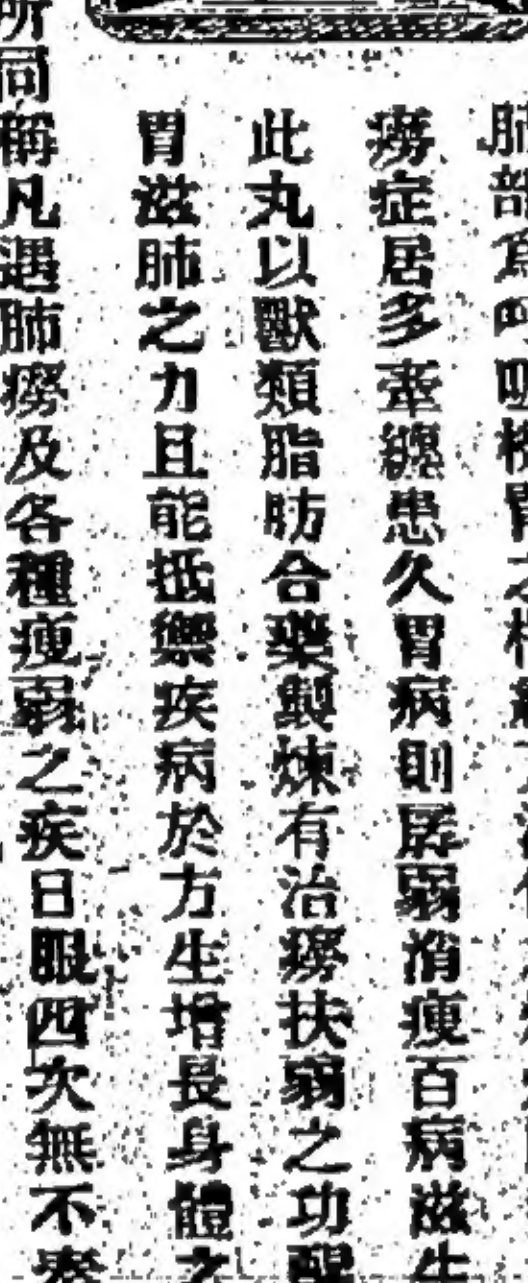 肺部為呼吸機胃之機
癆症居多牽纏患久胃病則孱弱消瘦百病滋生
此丸以獸類脂肪合藥製煉有治癆扶弱之功醒
胃滋肺之力且能抵禦疾病於方生增長身體之
所同稱凡遇肺癆及各種瘦弱之疾日服四次無不奏